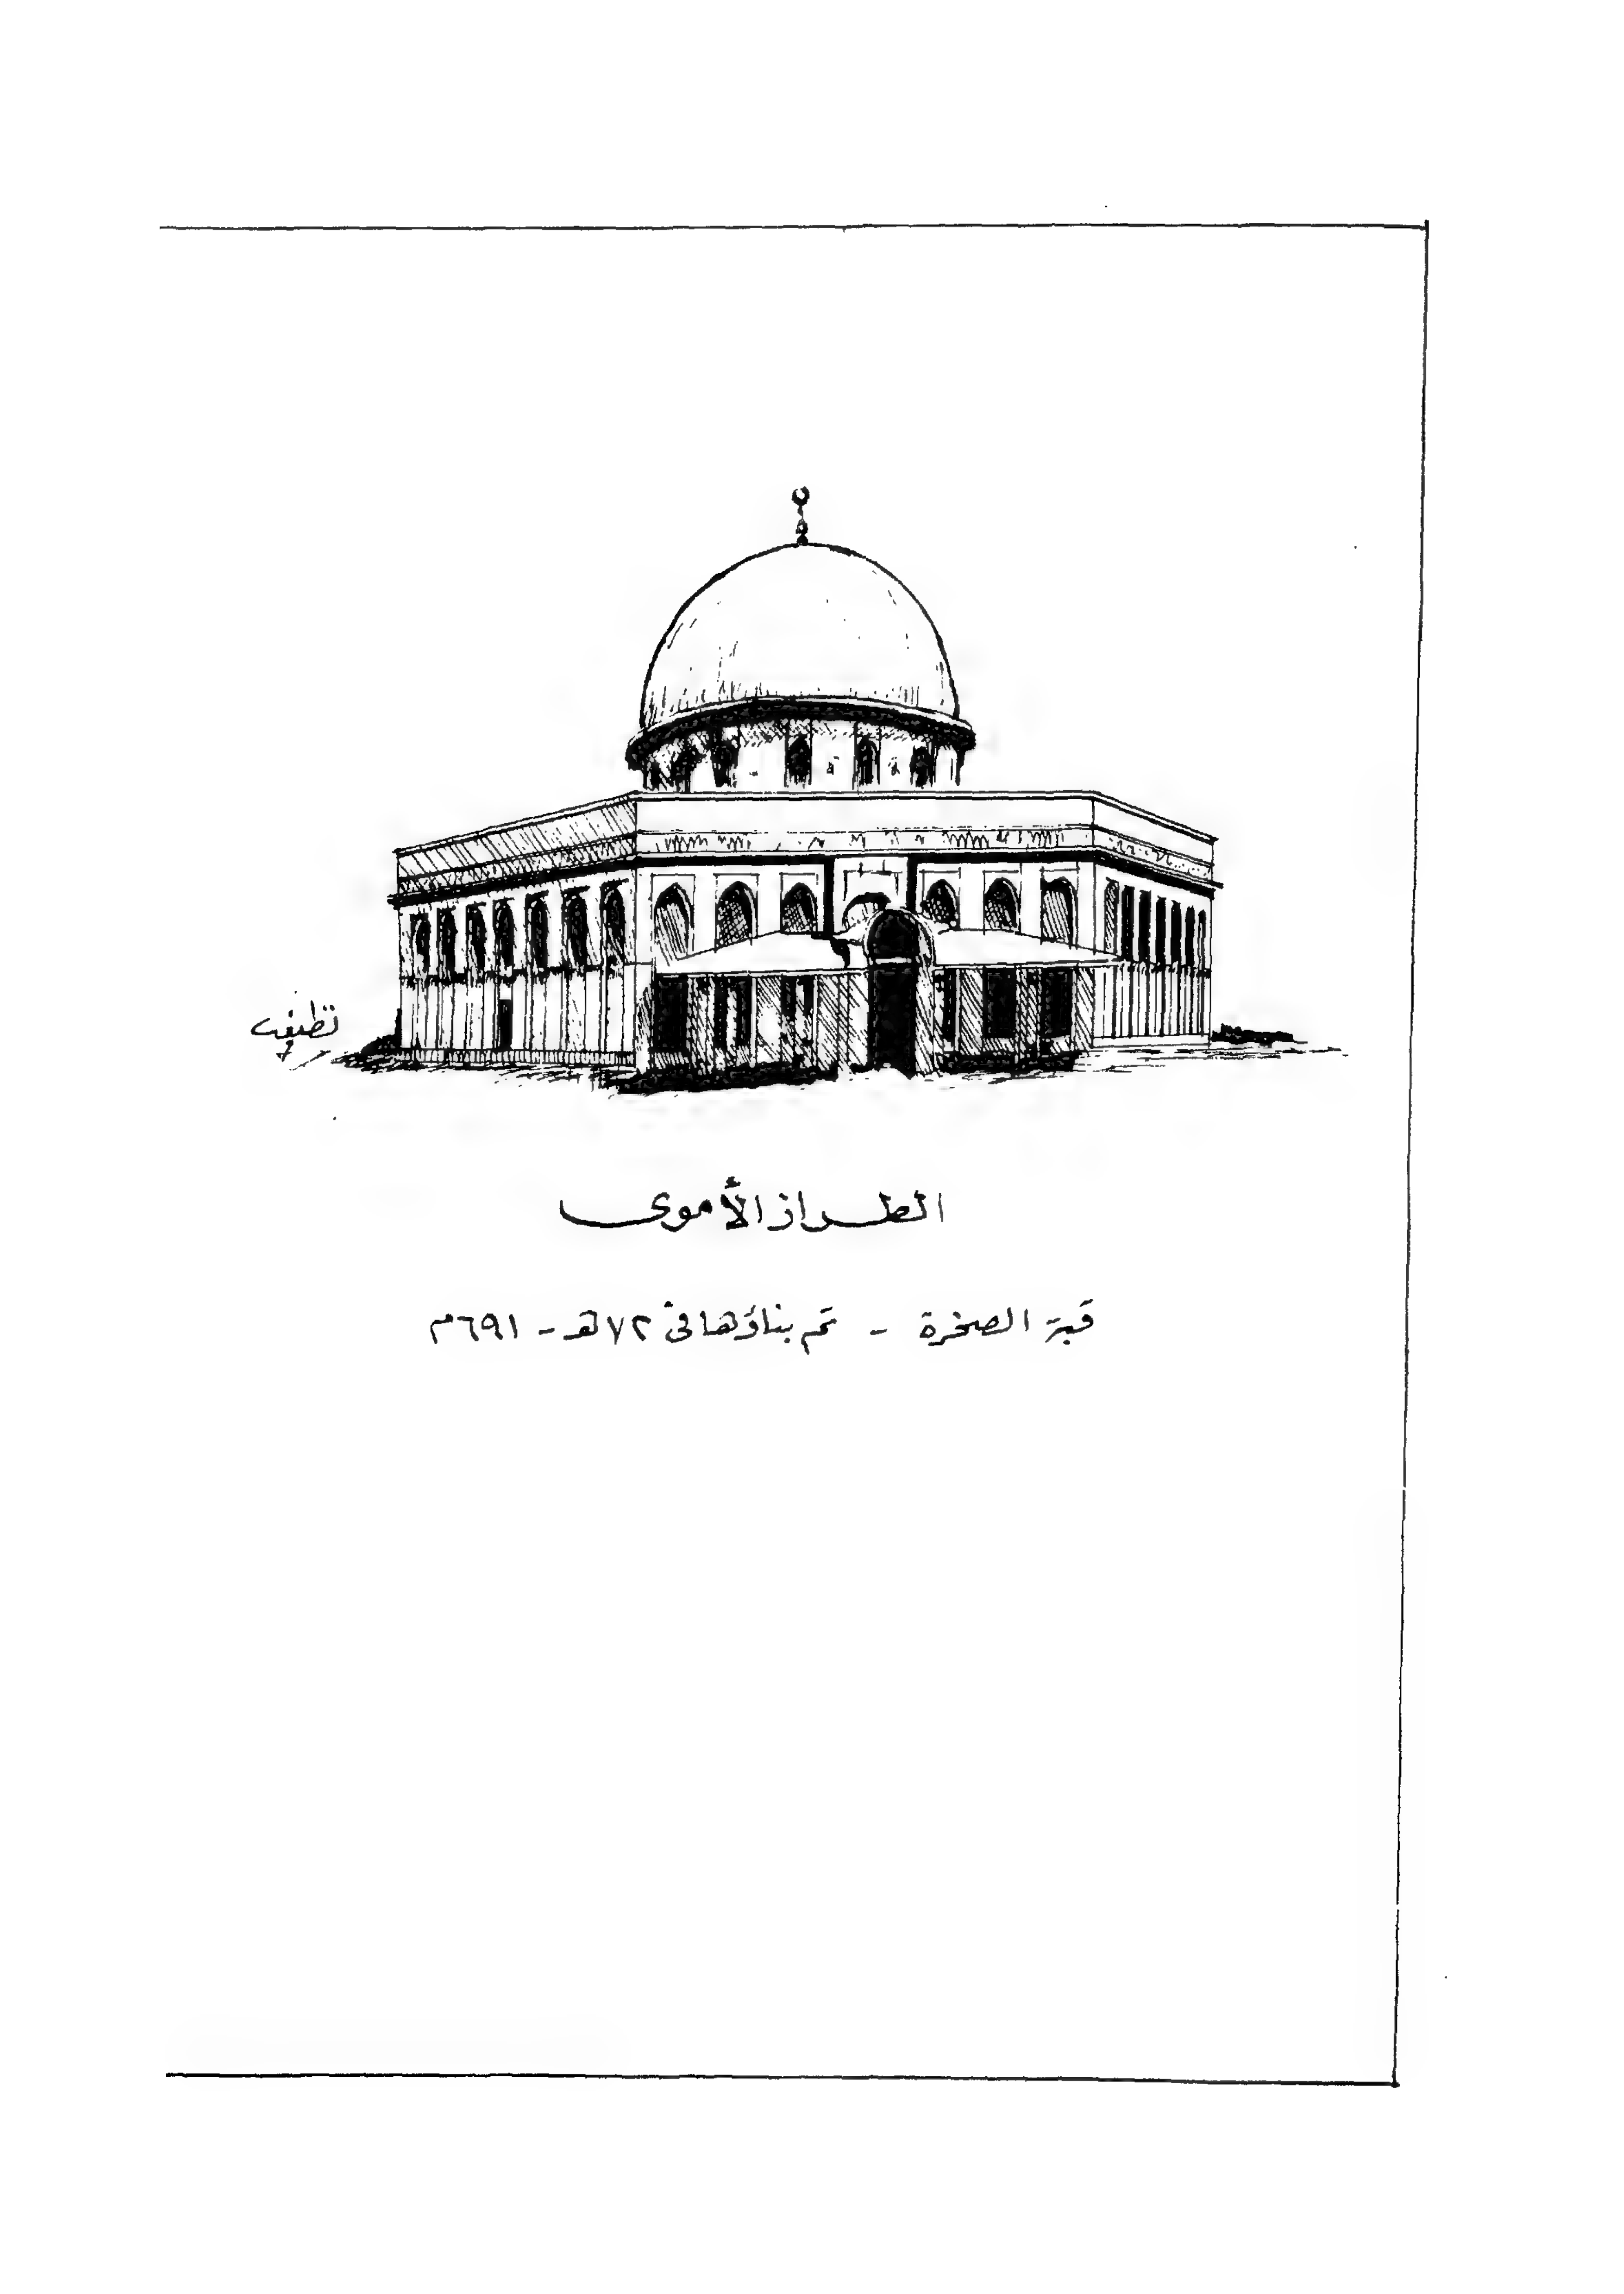 الطراز الأموى
قبة الصخرة - تم بناؤها فى ٧٢هـ - ٦٩١م